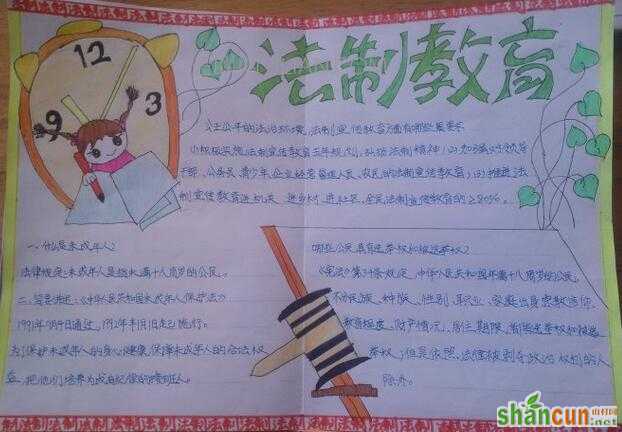 法制教育
12
9
3
公正公平的法治环境,法制宣传教育方面有哪些要求
干部、公务员、青少年、企业经营管理人员、农民的法制宣传教育;(3)推进法
制宣传教育进机关、进乡村、进社区、
一、什么是未成年人?
法律规定:未成年人是指未满十八周岁的公民。
二、《中华人民共和国未成年人保护法》
1991年9月4日通过,1992年1月1日起施行。
为了保护未成年人的身心健康,保障未成年人的合法权
益、把他们培养为
哪些公民具有选举权和被选举权?
《宪法》第34条规定,中华人民共和国年满十八周岁的公民,
不分民族、种族、性别、职业、家庭出身、宗教信仰、
教育程度、财产情况、居住期限,都有选举权和被选
举权;但是依照法律被剥夺政治权利的人
除外。
shancun
山村网
.net